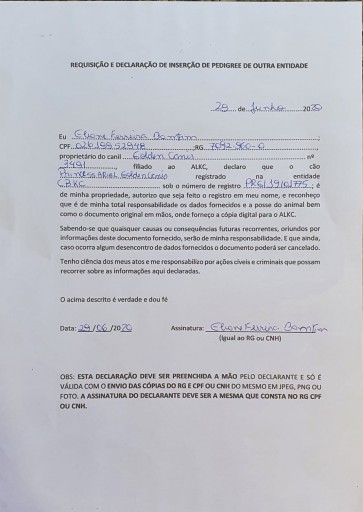 REQUISIÇÃO E DECLARAÇÃO DE INSERÇÃO DE PEDIGREE DE OUTRA ENTIDADE
29 de Junho 2020
Eu Eliane Ferreira Bomfim
CPF 02619952948 ;RG 7692-960-0
proprietário do canil Golden Canis nº
3491, filiado ao ALKC, declaro que o cão
Princesa Ariel Golden Canis registrado na entidade
CBKC sob o número de registro ; é
de minha propriedade, autorizo que seja feito o registro em meu nome, e reconheço
que é de minha total responsabilidade os dados fornecidos e a posse do animal bem
como o documento original em mãos, onde forneço a cópia digital para o ALKC.
Sabendo-se que quaisquer causas ou consequências futuras recorrentes, oriundos por
informações deste documento fornecido, serão de minha responsabilidade. E que ainda,
caso ocorra algum desencontro de dados fornecidos o documento poderá ser cancelado.
Tenho ciência dos meus atos e me responsabilizo por ações cíveis e criminais que possam
recorrer sobre as informações aqui declaradas.
O acima descrito é verdade e dou fé
Data: 29/06/2020 Assinatura: Eliane Ferreira Bomfim
(Igual ao RG ou CNH)
OBS: ESTA DECLARAÇÃO DEVE SER PREENCHIDA A MÃO PELO DECLARANTE E SÓ É
VÁLIDA COM O ENVIO DAS CÓPIAS DO RG E CPF OU CNH DO MESMO EM JPEG, PNG OU
FOTO. A ASSINATURA DO DECLARANTE DEVE SER A MESMA QUE CONSTA NO RG CPF
OU CNH.